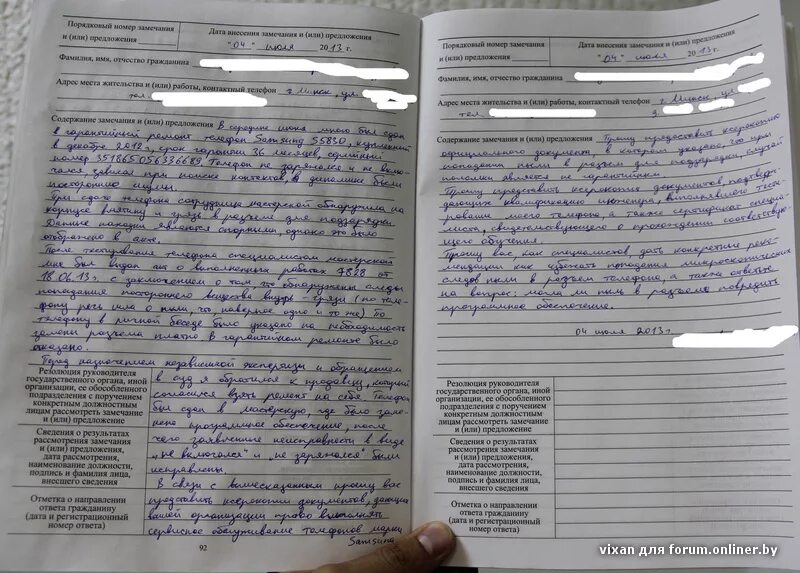 Порядковый номер замечания
и (или) предложения
Дата внесения замечания и (или) предложения
"04" июля 2013 г.
Фамилия, имя, отчество гражданина
Адрес места жительства и (или) работы, контактный телефон г. Минск, ул.
тел.
Содержание замечания и (или) предложения В середине июня мною был сдан
в гарантийный ремонт телефон Samsung S5830, купленный
в декабре 2012 г., срок гарантии 36 месяцев, серийный
номер 351865056336689. Телефон не заряжался и не вклю-
чался, зависал при поиске контактов, в динамике были
посторонние шумы.
При сдаче телефона сотрудница мастерской обнаружила на
корпусе вмятину и грязь в разъеме для подзарядки.
Данные находки являются спорными, однако это было
отображено в акте.
После тестирования телефона специалистом мастерской
мне был выдан акт о выполненных работах 4828 от
18.06.13 г. с заключением о том, что обнаружены следы
попадания постороннего вещества внутрь - грязи (по теле-
фону речь шла о пыли, что, наверное, одно и то же). По
телефону в личной беседе было указано на необходимость
замены разъема платно. В гарантийном ремонте было
отказано.
Перед назначением независимой экспертизы и обращением
в суд я обратился к продавцу, который
согласился взять ремонт на себя. Телефон
был сдан в мастерскую, где было заме-
нено программное обеспечение, после
чего заявленные неисправности в виде
"не включался" и "не заряжался" были
исправлены.
В связи с вышесказанным прошу вас
предоставить ксерокопии документов, дающих
вашей организации право выполнять
сервисное обслуживание телефонов марки
Samsung
Резолюция руководителя
государственного органа, иной
организации, ее обособленного
подразделения с поручением
конкретным должностным
лицам рассмотреть замечание
и (или) предложение
Сведения о результатах
рассмотрения замечания
и (или) предложения,
дата рассмотрения,
наименование должности,
подпись и фамилия лица,
внесшего сведения
Отметка о направлении
ответа гражданину
(дата и регистрационный
номер ответа)
92
Порядковый номер замечания
и (или) предложения
Дата внесения замечания и (или) предложения
"04" июля 2013 г.
Фамилия, имя, отчество гражданина
Адрес места жительства и (или) работы, контактный телефон г. Минск, ул.
тел.
Содержание замечания и (или) предложения Прошу предоставить ксерокопию
официального документа, в котором указано, что при
попадании пыли в разъем для подзарядки, случай
поломки является не гарантийным.
Прошу предоставить ксерокопии документов, подтвер-
ждающих квалификацию инженера, выполнявшего тести-
рование моего телефона, а также сертификат специа-
листа, свидетельствующего о прохождении соответствую-
щего обучения.
Прошу вас, как специалистов дать конкретные реко-
мендации как избежать попадания микроскопических
следов пыли в разъем телефона, а также ответьте
на вопрос: могла ли пыль в разъеме повредить
программное обеспечение.
04 июля 2013 г.
Резолюция руководителя
государственного органа, иной
организации, ее обособленного
подразделения с поручением
конкретным должностным
лицам рассмотреть замечание
и (или) предложение
Сведения о результатах
рассмотрения замечания
и (или) предложения,
дата рассмотрения,
наименование должности,
подпись и фамилия лица,
внесшего сведения
Отметка о направлении
ответа гражданину
(дата и регистрационный
номер ответа)
vixan для forum.onliner.by